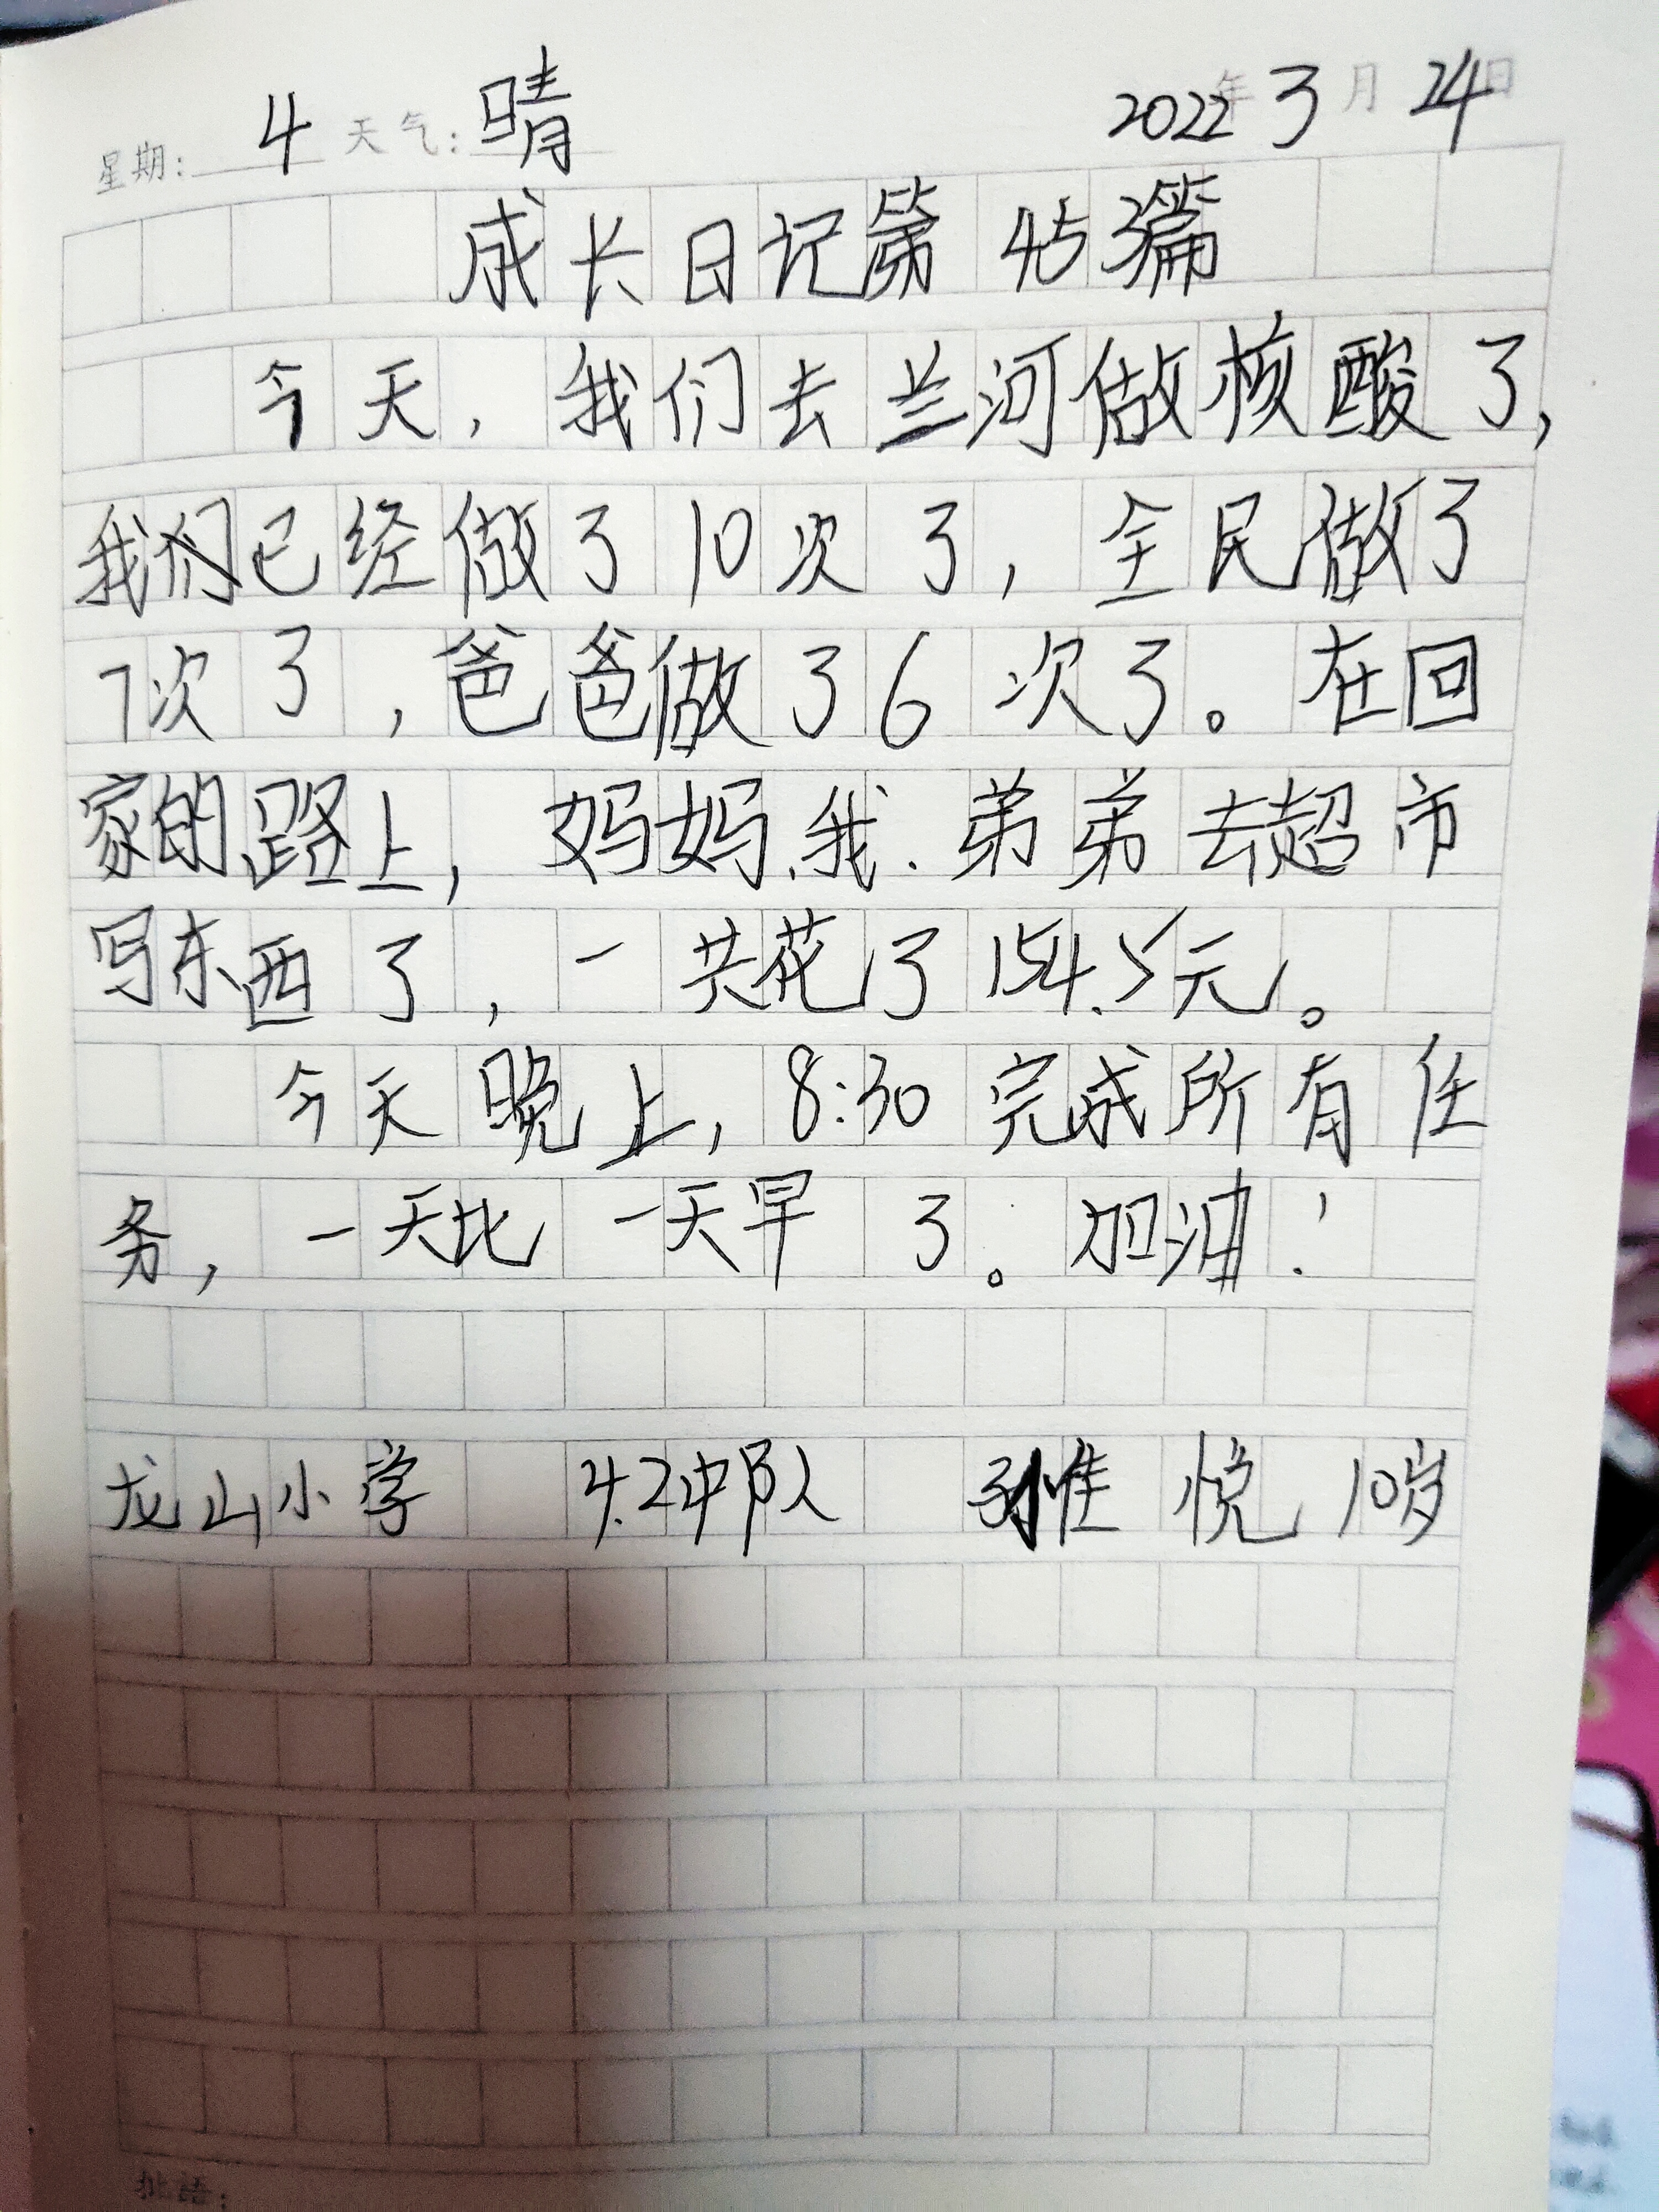 星期: 4 天气: 晴 2022年3月24日
成长日记第45篇
今天，我们去兰河做核酸了，
我们已经做了10次了，全民做了
7次了，爸爸做了6次了。在回
家的路上，妈妈、我、弟弟去超市
写东西了，一共花了154.5元。
今天晚上，8:30完成所有任
务，一天比一天早了。加油！
龙山小学 4.2中队 孙惟悦 10岁
批语：